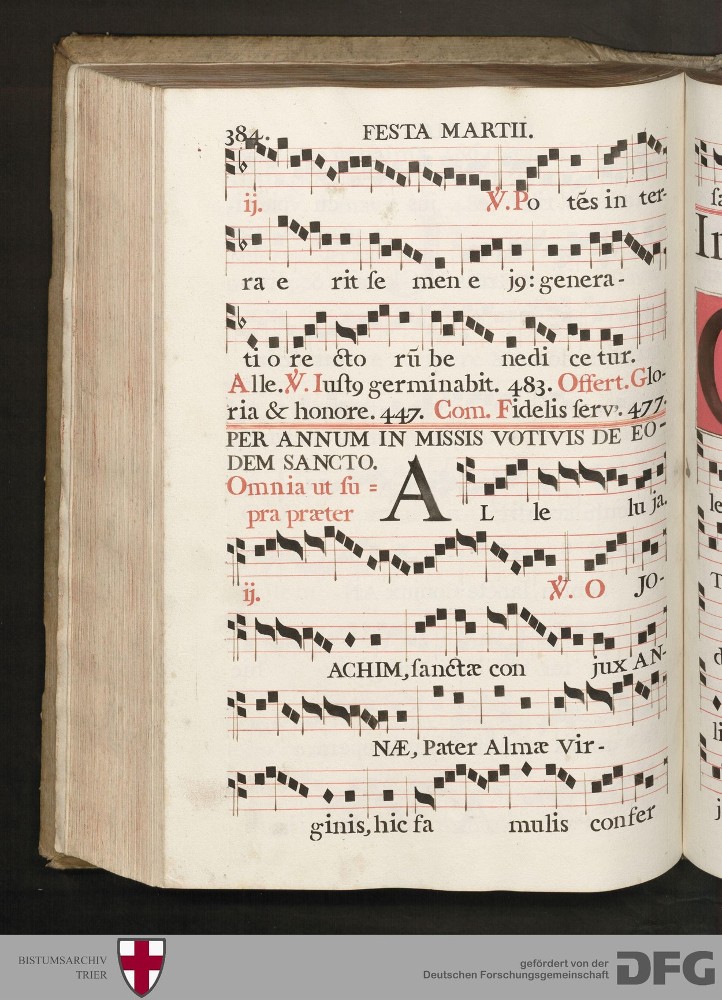 384. FESTA MARTII.
ij. ℣. Po tẽs in ter-
ra e rit ſe men e j9: genera-
ti o re cto rũ be nedi ce tur.
Alle. ℣. Iuſt9 germinabit. 483. Offert. Glo-
ria & honore. 447. Com. Fidelis ſerv9. 477.
PER ANNUM IN MISSIS VOTIVIS DE EO-
DEM SANCTO.
Omnia ut ſu=
pra præter
AL le lu ja.
ij. ℣. O JO-
ACHIM, ſanctæ con jux AN-
NÆ, Pater Almæ Vir-
ginis, hic fa mulis confer
BISTUMSARCHIV
TRIER
gefördert von der
Deutschen Forschungsgemeinschaft
DFG